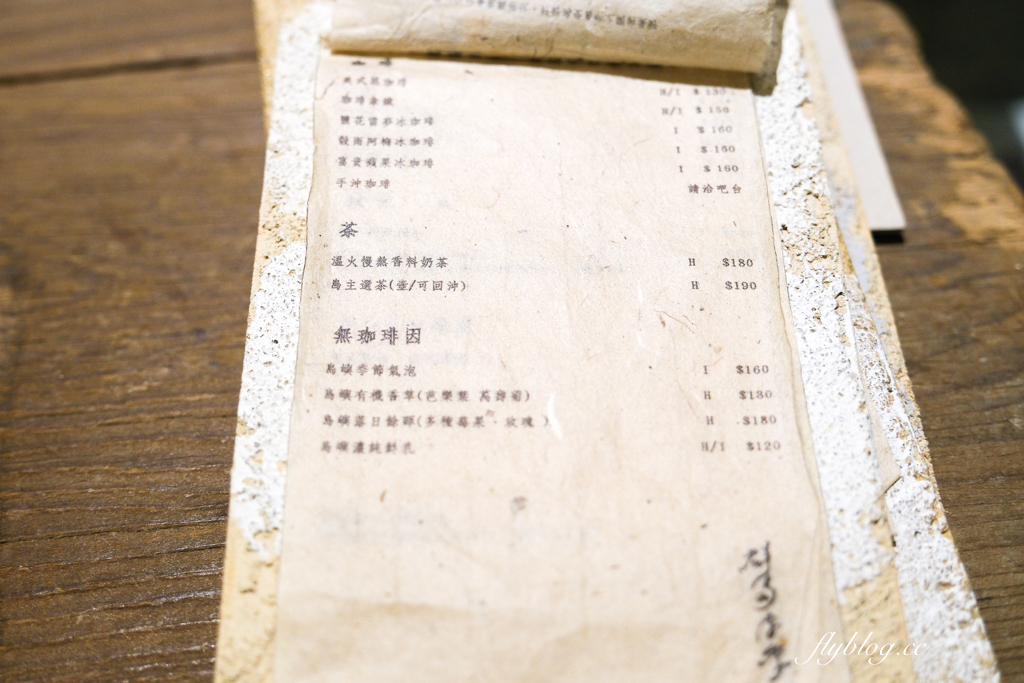 美式黑咖啡 H/I $130
咖啡拿鐵 H/I $150
鹽花雷夢冰咖啡 I $160
穀雨阿梅冰咖啡 I $160
富貴蘋果冰咖啡 I $160
手沖咖啡 請洽吧台
茶
溫火慢熬香料奶茶 H $180
島主選茶(壺/可回沖) H $190
無咖啡因
島嶼季節氣泡 I $160
島嶼有機香草(芭樂葉 萬壽菊) H $130
島嶼落日餘暉(多種莓果、玫瑰 ) H $180
島嶼濃純鮮乳 H/I $120
flyblog.cc